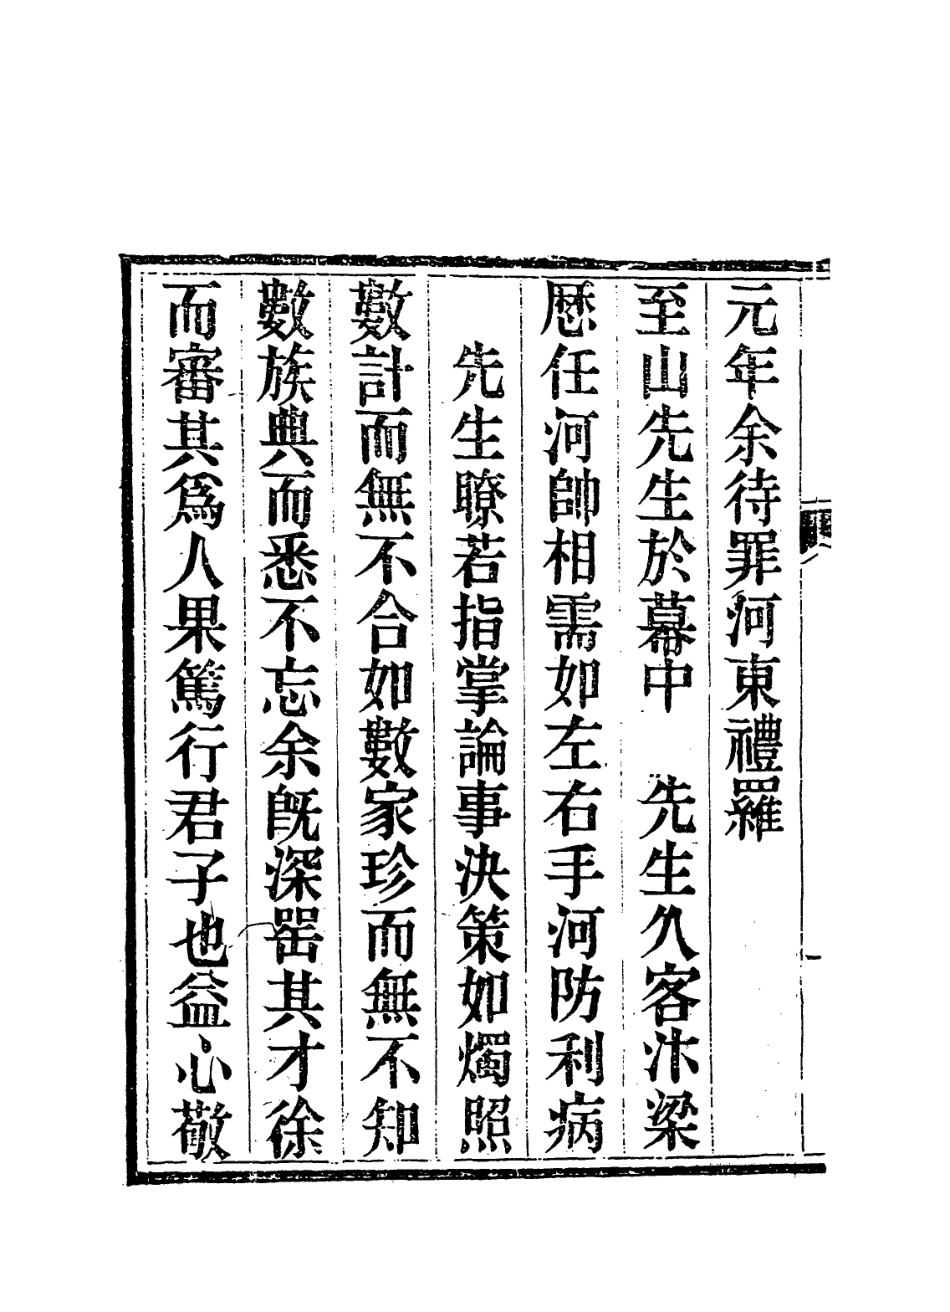 元年余待罪河東禮羅
至山先生於幕中　先生久客汴梁
歷任河帥相需如左右手河防利病
　先生瞭若指掌論事決策如燭照
數計而無不合如數家珍而無不知
數族典而悉不忘余旣深噐其才徐
而審其爲人果篤行君子也益心敬